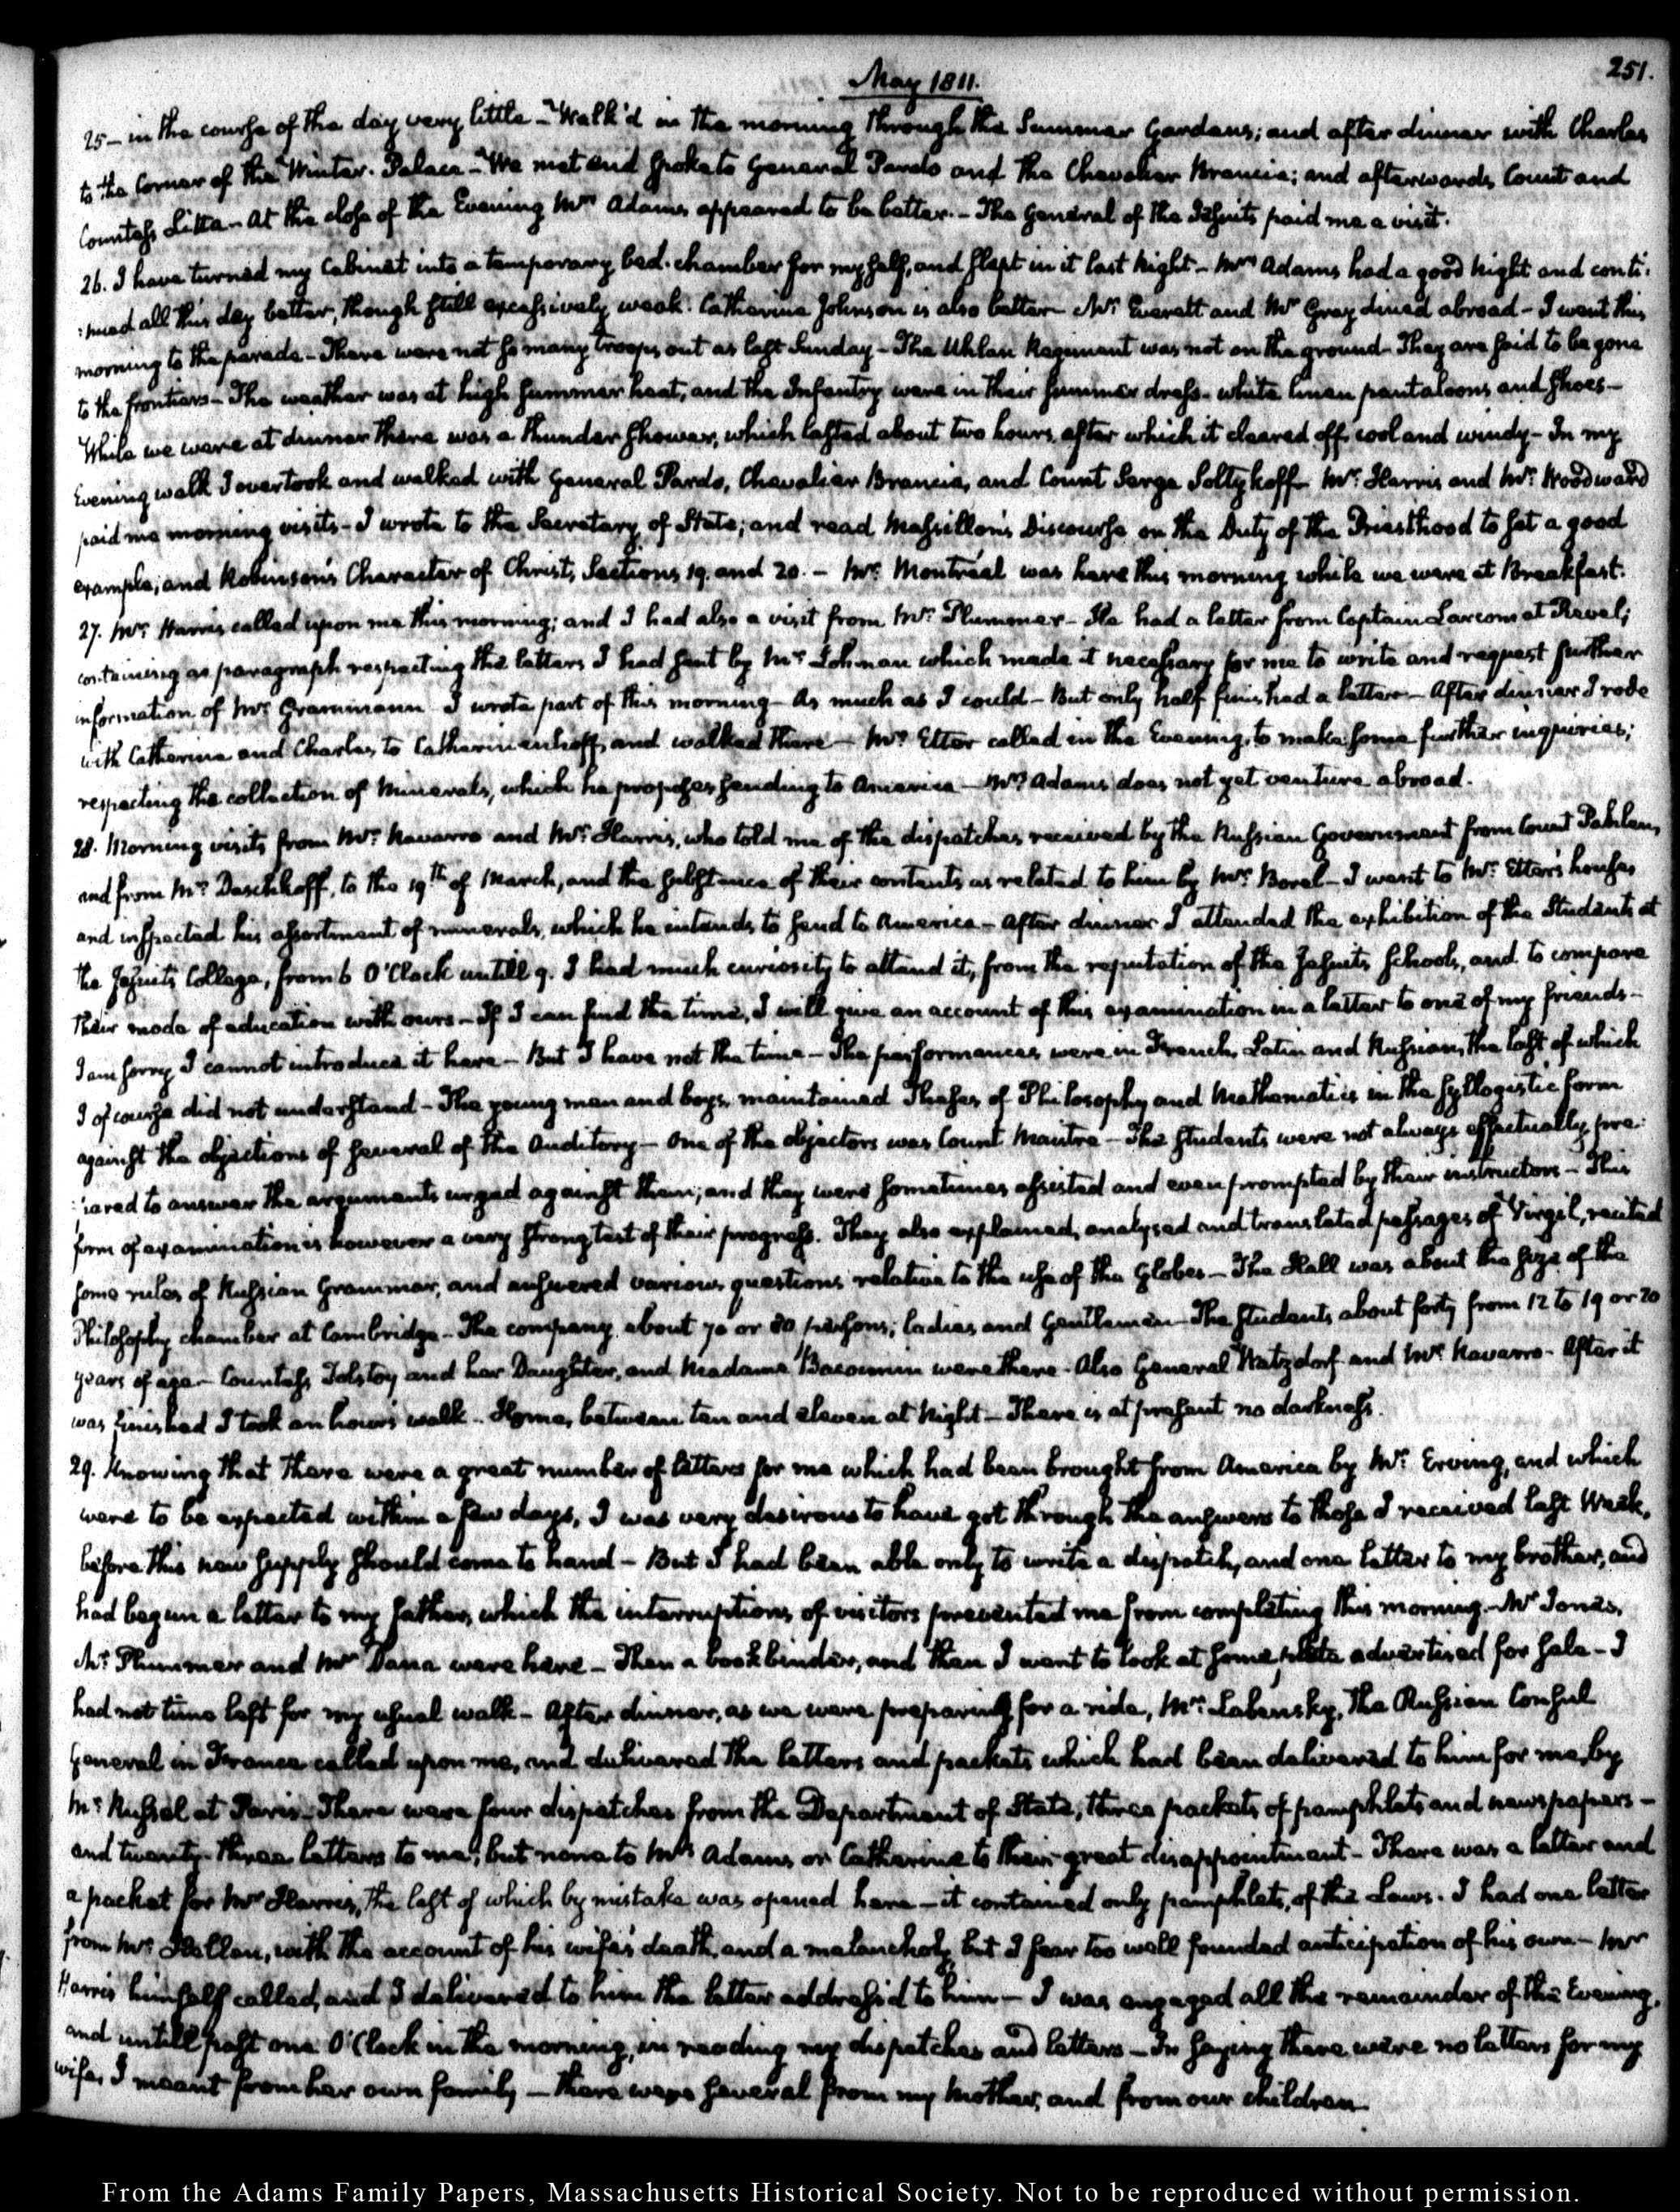 251.
May 1811.
25 — in the course of the day very little — Walk'd in the morning through the Summer Gardens; and after dinner with Charles
to the Corner of the Winter-Palace — We met and spoke to General Pardo and the Chevalier Brancia; and afterwards Count and
Countess Litta — At the close of the Evening Mrs Adams appeared to be better. — The General of the Jesuits paid me a visit.
26. I have turned my Cabinet into a temporary bed-chamber for myself, and slept in it last Night — Mrs Adams had a good Night and conti-
:nued all this day better, though still excessively weak. Catherine Johnson is also better — Mr Everett and Mr Gray dined abroad — I went this
morning to the parade — There were not so many troops out as last Sunday — The Uhlan Regiment was not on the ground — They are said to be gone
to the frontiers — The weather was at high summer heat, and the Infantry were in their summer dress — white linen pantaloons and shoes —
While we were at dinner there was a thunder shower, which lasted about two hours, after which it cleared off cool and windy — In my
Evening walk I overtook and walked with General Pardo, Chevalier Brancia, and Count Serge Soltykoff — Mr Harris and Mr Woodward
paid me morning visits — I wrote to the Secretary of State; and read Massillon's Discourse on the Duty of the Priesthood to set a good
example; and Robinson's Character of Christ, Sections 19. and 20. — Mr Montréal was here this morning while we were at Breakfast.
27. Mr Harris called upon me this morning; and I had also a visit from Mr Plummer — He had a letter from Captain Larcom at Reval;
containing a paragraph respecting the letters I had sent by Mr Lohman which made it necessary for me to write and request further
information of Mr Grammann I wrote part of this morning — As much as I could — But only half finished a letter — After dinner I rode
with Catherine and Charles to Catherinenhoff, and walked there — Mr Etter called in the Evening, to make some further inquiries;
respecting the collection of Minerals, which he proposes sending to America — Mrs Adams does not yet venture abroad.
28. Morning visits from Mr Navarro and Mr Harris, who told me of the dispatches received by the Russian Government from Count Pahlen,
and from Mr Daschkoff, to the 19th of March, and the substance of their contents as related to him by Mr Borel — I went to Mr Etter's house
and inspected his assortment of minerals, which he intends to send to America — After dinner I attended the exhibition of the Students at
the Jesuits College, from 6 O'Clock untill 9. I had much curiosity to attend it, from the reputation of the Jesuits Schools, and to compare
their mode of education with ours — If I can find the time, I will give an account of this examination in a letter to one of my friends —
I am sorry I cannot introduce it here — But I have not the time — The performances were in French, Latin and Russian, the last of which
I of course did not understand — The young men and boys, maintained Theses of Philosophy and Mathematics in the syllogistic form
against the objections of several of the Auditory — One of the objectors was Count Maistre — The students were not always effectually pre-
:pared to answer the arguments urged against them; and they were sometimes assisted and even prompted by their instructors — This
form of examination is however a very strong test of their progress. They also explained, analysed and translated passages of Virgil, recited
some rules of Russian Grammar, and answered various questions relative to the use of the Globes — The Hall was about the size of the
Philosophy chamber at Cambridge — The company, about 70 or 80 persons; ladies and Gentlemen — The students about forty from 12 to 19 or 20
years of age — Countess Tolstoy and her Daughter, and Madame Bacounin were there — Also General Watzdorf and Mr Navarro — After it
was finished I took an hour's walk — Home, between ten and eleven at Night — There is at present no darkness.
29. Knowing that there were a great number of letters for me which had been brought from America by Mr Erving, and which
were to be expected within a few days, I was very desirous to have got through the answers to those I received last Week,
before this new supply should come to hand — But I had been able only to write a dispatch, and one letter to my brother, and
had begun a letter to my father, which the interruptions of visitors prevented me from completing this morning. — Mr Jones,
Mr Plummer and Mr Dana were here — Then a bookbinder, and then I went to look at some plate advertised for sale — I
had not time left for my usual walk — After dinner, as we were preparing for a ride, Mr Labensky, the Russian Consul
General in France called upon me, and delivered the letters and packets which had been delivered to him for me, by
Mr Russel at Paris — There were four dispatches from the Department of State, three packets of pamphlets and newspapers —
and twenty-three letters to me, but none to Mrs Adams or Catherine to their great disappointment — There was a letter and
a packet for Mr Harris, the last of which by mistake was opened here — it contained only pamphlets, of the Laws. I had one letter
from Mr Hellen, with the account of his wife's death, and a melancholy but I fear too well founded anticipation of his own — Mr
Harris himself called, and I delivered to him the letter address'd to him — I was engaged all the remainder of the Evening,
and untill past one O'Clock in the morning, in reading my dispatches and letters — In saying there were no letters for my
wife, I meant from her own family — there were several from my Mother, and from our children.
From the Adams Family Papers, Massachusetts Historical Society. Not to be reproduced without permission.